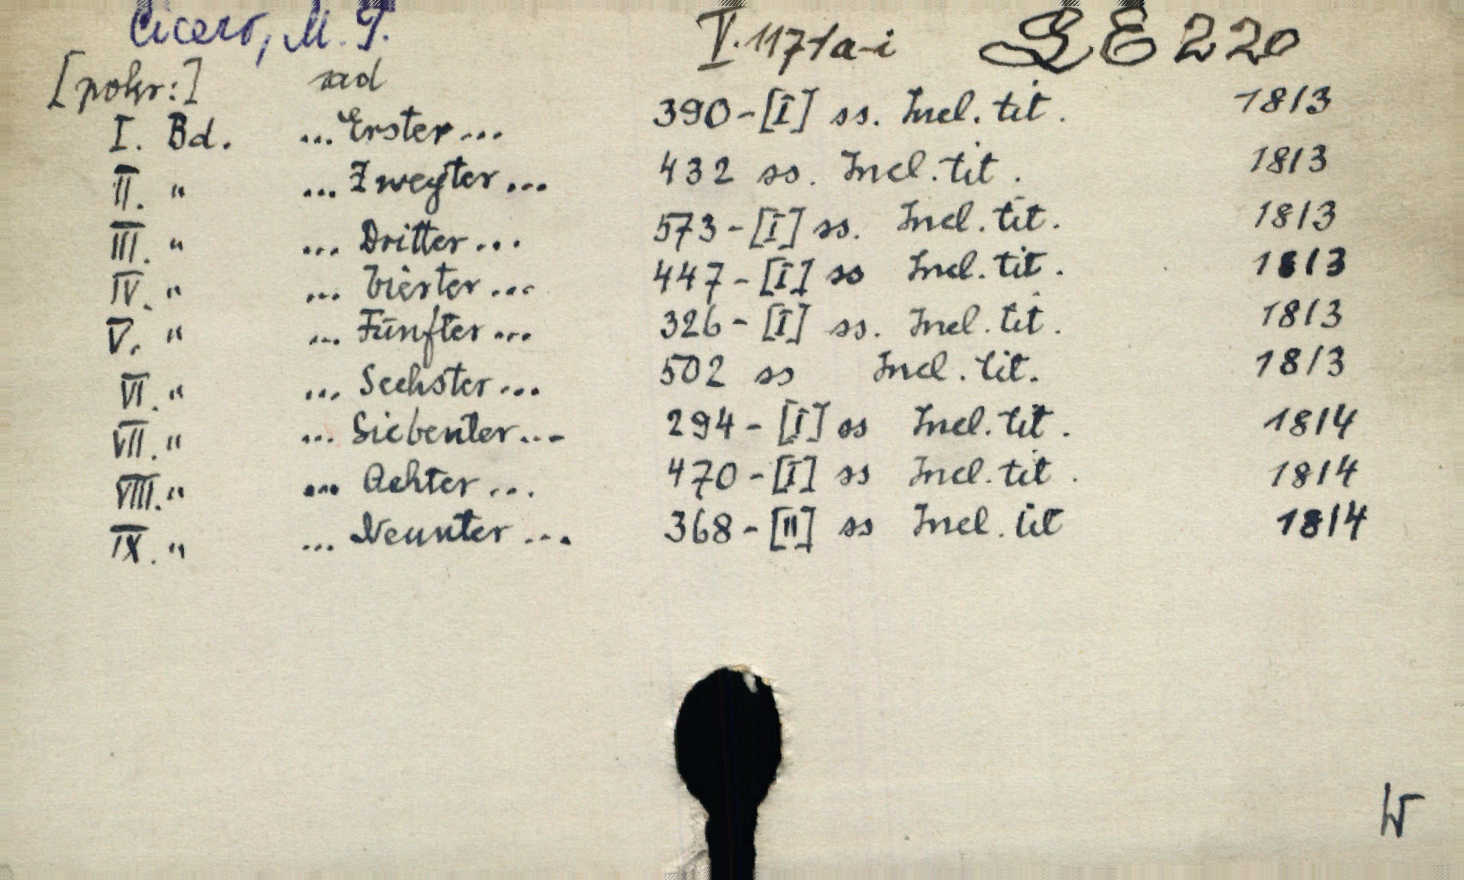 Cicero, M. T. V. 1171a-i SE 220
[pokr:] sad
I. Bd. ... Erster ... 390-[I] ss. Incl. tit. 1813
II. " ... Zweyter ... 432 ss. Incl. tit. 1813
III. " ... Dritter ... 573-[I] ss. Incl. tit. 1813
IV. " ... Vierter ... 447-[I] ss Incl. tit. 1813
V. " ... Fünfter ... 326-[I] ss. Incl. tit. 1813
VI. " ... Sechster ... 502 ss Incl. tit. 1813
VII. " ... Siebenter ... 294-[I] ss Incl. tit. 1814
VIII. " ... Achter ... 470-[I] ss Incl. tit. 1814
IX. " ... Neunter ... 368-[II] ss Incl. tit 1814
W